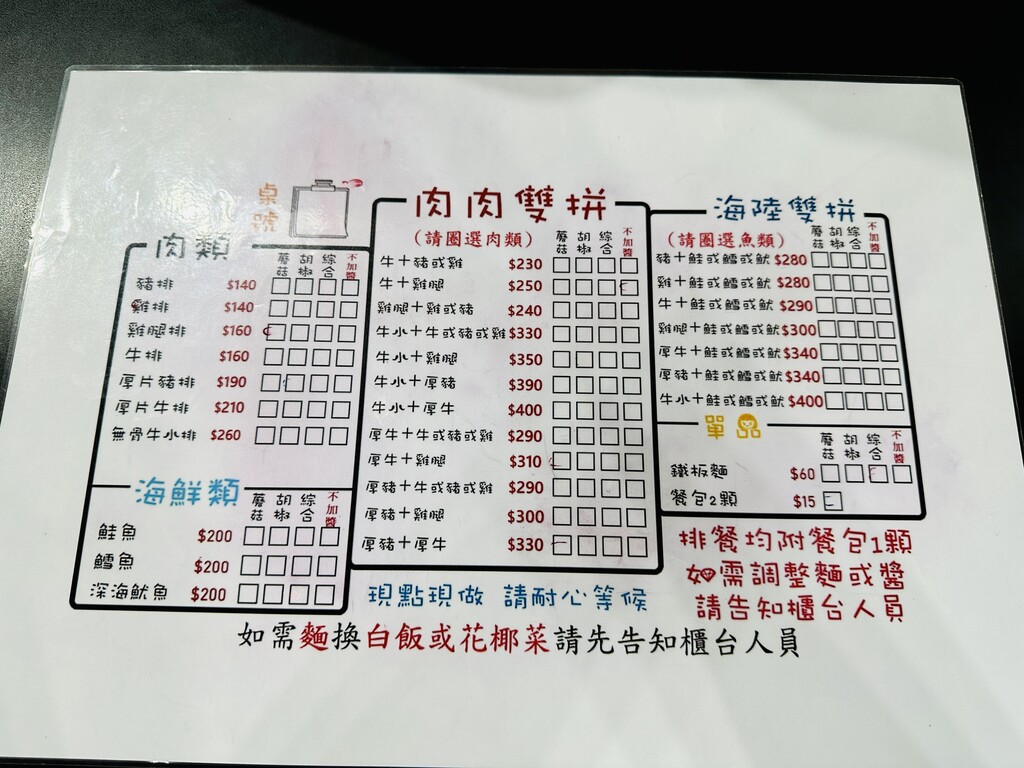 桌號
肉類
蘑菇 胡椒 綜合 不加醬
豬排 $140
雞排 $140
雞腿排 $160
牛排 $160
厚片豬排 $190
厚片牛排 $210
無骨牛小排 $260
海鮮類
蘑菇 胡椒 綜合 不加醬
鮭魚 $200
鱈魚 $200
深海魷魚 $200
肉肉雙拼
(請圈選肉類)
蘑菇 胡椒 綜合 不加醬
牛+豬或雞 $230
牛+雞腿 $250
雞腿+雞或豬 $240
牛小+牛或豬或雞 $330
牛小+雞腿 $350
牛小+厚豬 $390
牛小+厚牛 $400
厚牛+牛或豬或雞 $290
厚牛+雞腿 $310
厚豬+牛或豬或雞 $290
厚豬+雞腿 $300
厚豬+厚牛 $330
海陸雙拼
(請圈選魚類)
蘑菇 胡椒 綜合 不加醬
豬+鮭或鱈或魷 $280
雞+鮭或鱈或魷 $280
牛+鮭或鱈或魷 $290
雞腿+鮭或鱈或魷 $300
厚牛+鮭或鱈或魷 $340
厚豬+鮭或鱈或魷 $340
牛小+鮭或鱈或魷 $400
單品
蘑菇 胡椒 綜合 不加醬
鐵板麵 $60
餐包2顆 $15
排餐均附餐包1顆
如需調整麵或醬
請告知櫃台人員
現點現做 請耐心等候
如需麵換白飯或花椰菜請先告知櫃台人員